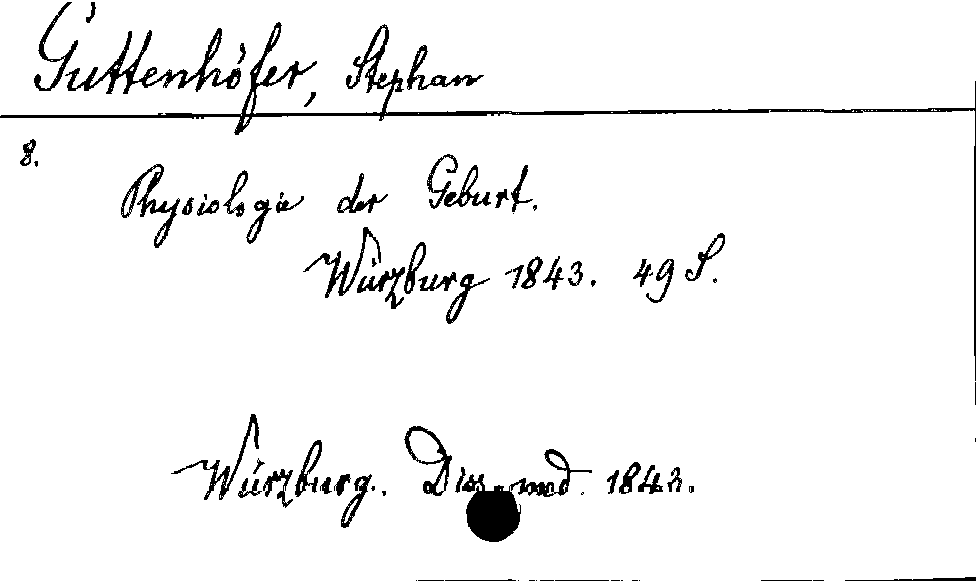 Guttenhöfer, Stephan
8.
Physiologie der Geburt.
Würzburg 1843. 49 S.
Würzburg. Diss. med. 1843.